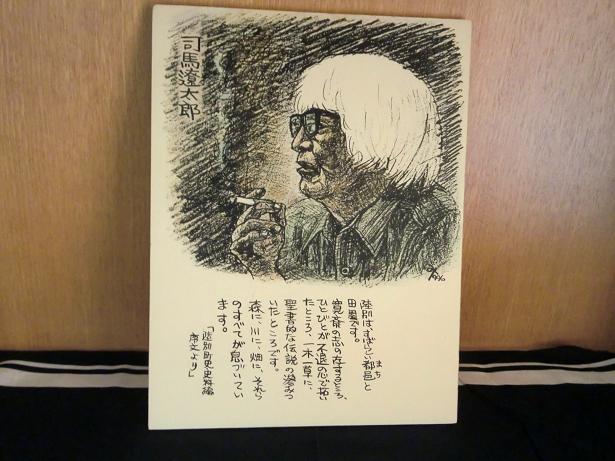 司馬遼太郎
陸別は、すばらしい都邑と
まち
田園です。
寛斎の志の存するところ、
ひとびとが不退の心で拓い
たところ、一木一草に、
聖書的な伝説の滲みつ
いたところです。
森に、川に、畑に、それら
のすべてが息づいてい
ます。
「陸別町史史料編
序文より」